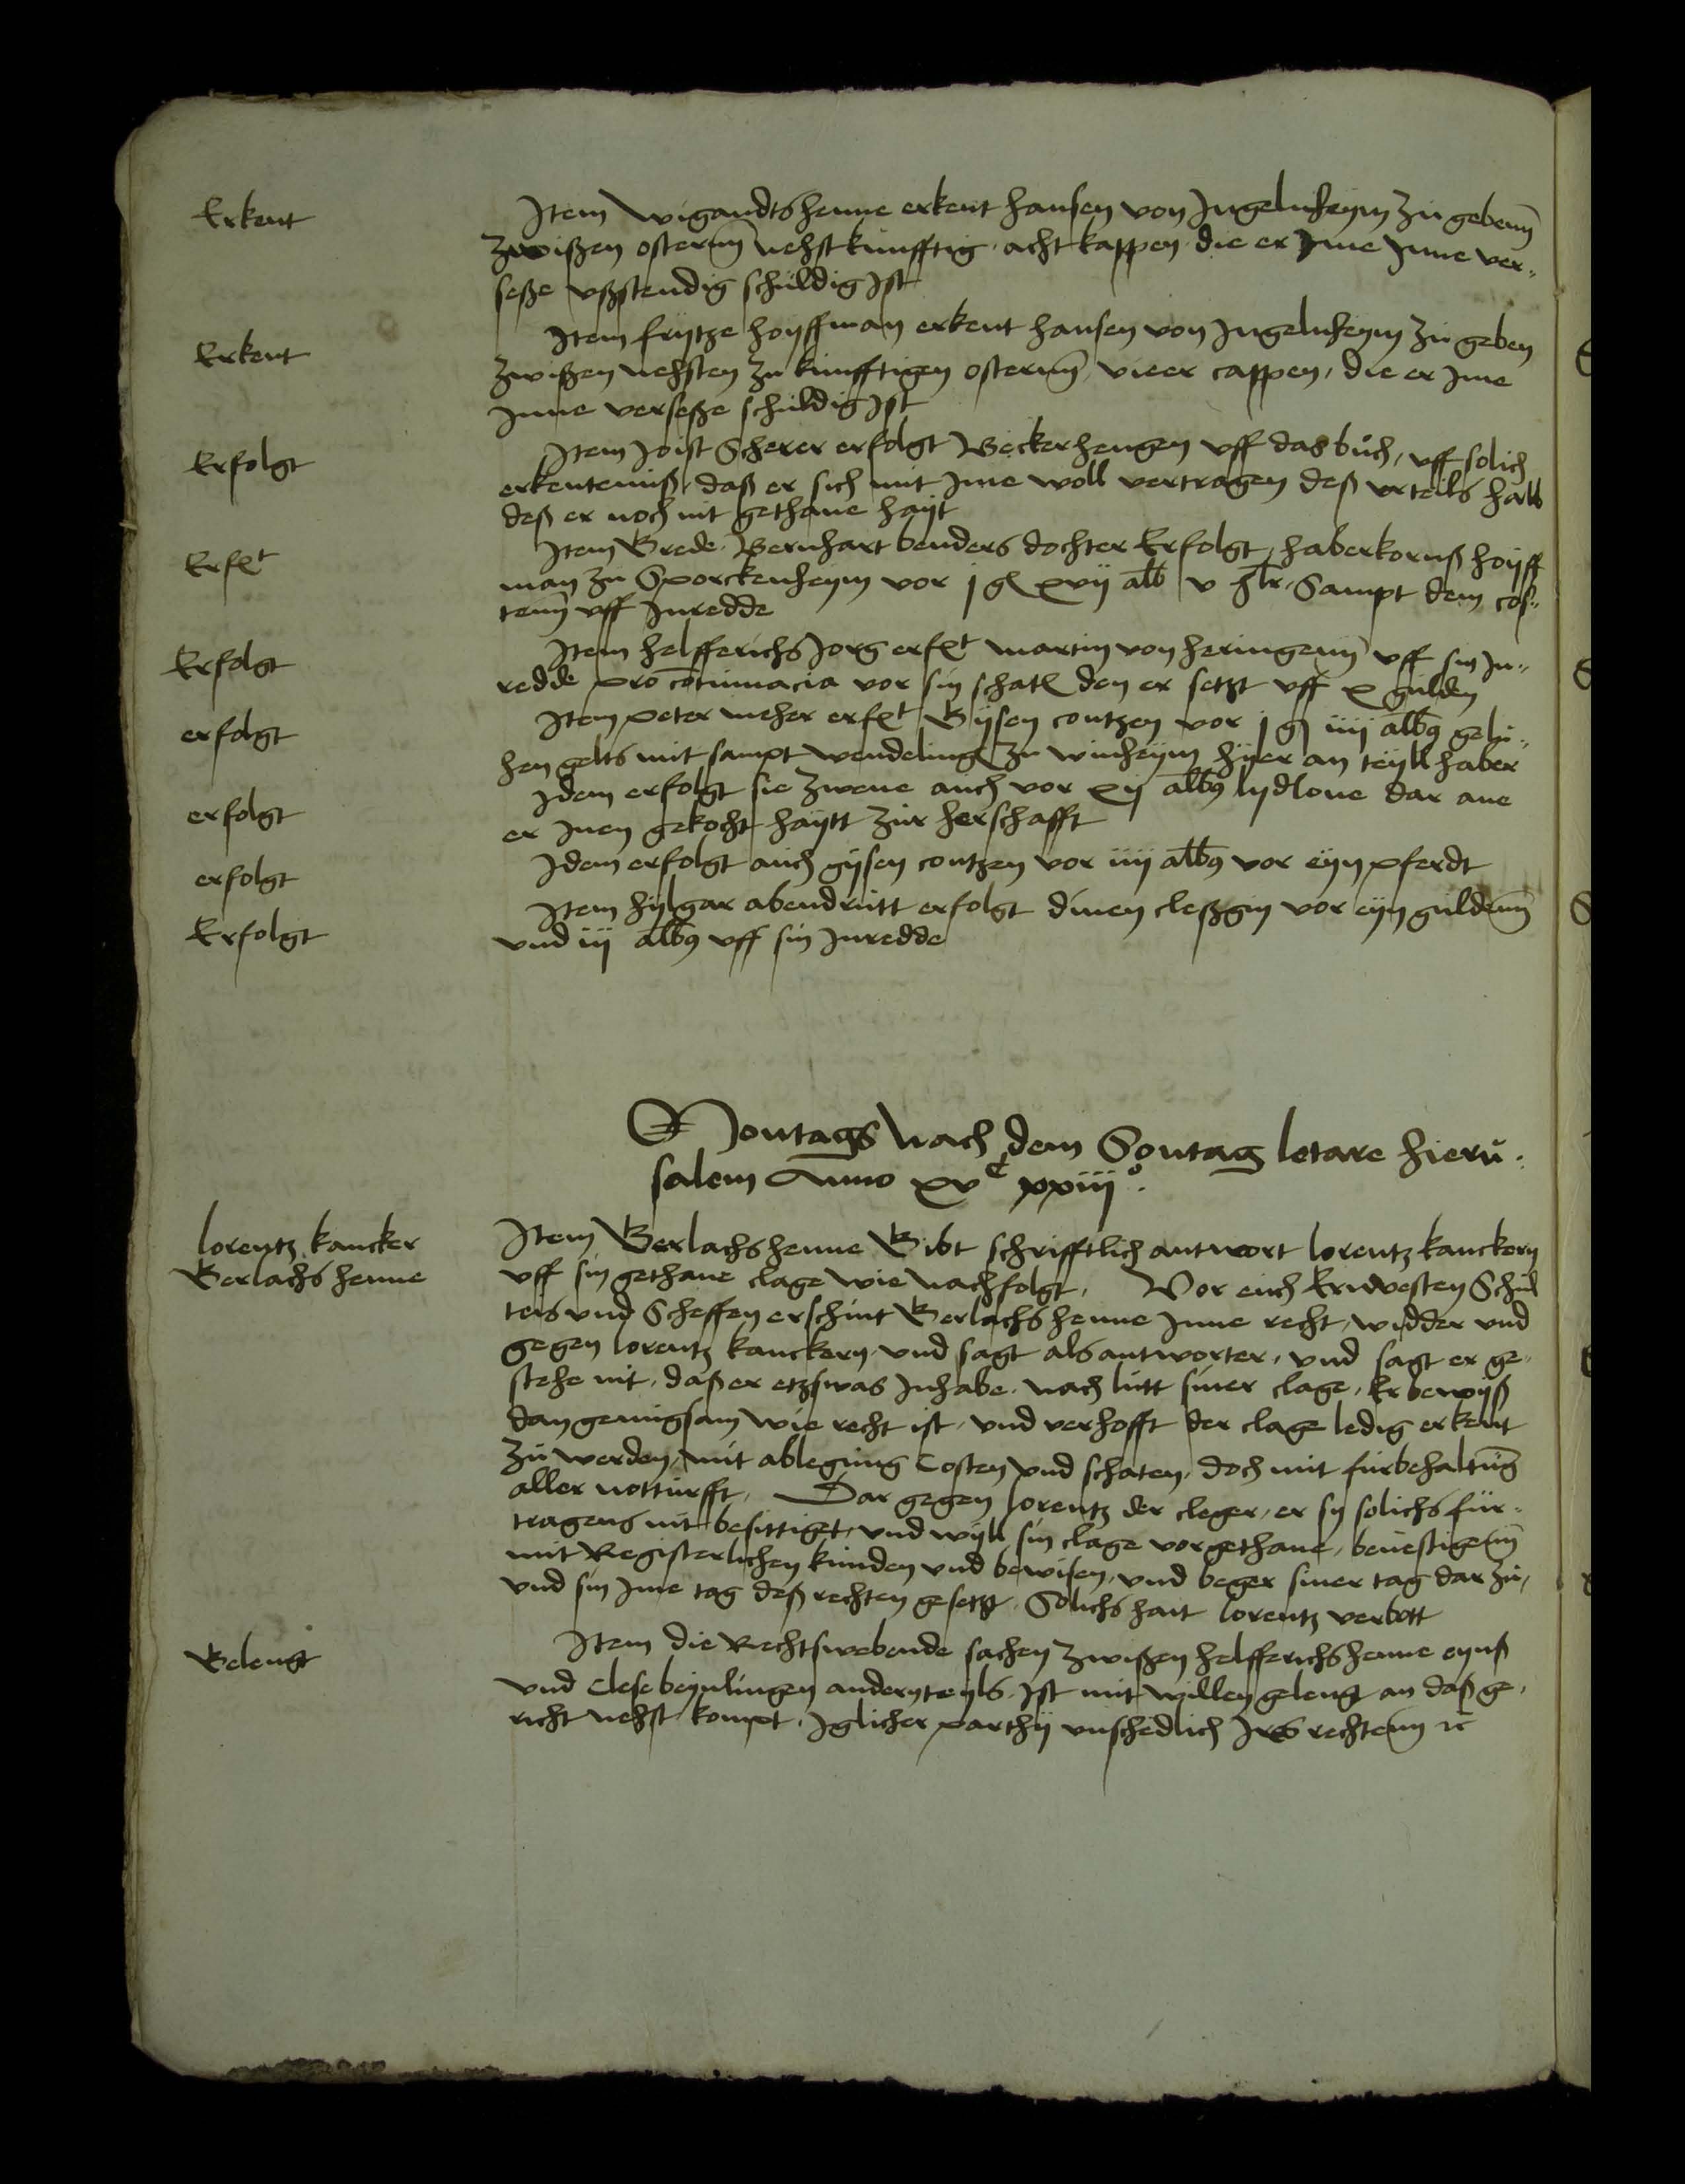 Erkent
Item Wigandtshenne erkent hansen von Ingelnheym zu gebenn
zwißen osternn nehstkunfftig acht kappen die er Ime Inne ver-
seße ußstendig schuldig Ist
Erkent
Item frytze hoyffman erkent hansen von Ingelnheym zu geben
zwißen nehsten zu kunfftigen osternn vieer cappen, die er Ime
Inne verseße schuldig Ist
Erfolgt
Item Joist Scherer erfolgt Beckerhengen uff das buch, uff solich
erkentenuß, daß er sich mit Ime woll vertragen deß urteils halb
deß er noch nit gethane hayt
Erfolgt
Item Grede Bernhart benders dochter Erfolgt haberkornß hoyff
man zu Sporckenheym vor j gl xvij alb v hlr Sampt dem cos-
tenn uff Inredde
Erfolgt
Item helfferichs Jorg erfolgt martin von heringenn uff sin In-
redde pro contumacia vor sin schatl den er setzt uff x gulden
erfolgt
Item peter meher erfolgt Gysen contzen vor j gl iiij albus gelu-
hen gelts mit sampt wendeling zu winheym hyer an teyll haber
erfolgt
Idem erfolgt sie zwene auch vor xij albus lydlone dar ane
er Inen gekocht haytt zur herschafft
erfolgt
Idem erfolgt auch gysen contzen vor iiij albus vor eyn pferdt
Erfolgt
Item hylgar abendrutt erfolgt dinen cleßgin vor eyn guldenn
und iij albus uff sin Inredde
Montags Nach dem Sontag letare hieru-
salem Anno xvc xxiiio.
lorentz kancker
Gerlachs henne
Item Gerlachs henne Gibt schrifftlich antwort lorentz kanckern
uff sin gethane clage wie nachfolgt, Vor euch Ernvesten Schul
teis und Scheffen erschint Gerlachs henne Inne recht, widder und
gegen lorentz kanckern und sagt als antworter, und sagt er ge-
stehe nit, daß er etzswas Inhabe nach lutt siner clage, Er bewyß
dan genugsam wie recht ist, und verhofft der clage ledig erkent
zu werden, mit ablegung Costen und schaten, doch mit furbehaltung
aller notturfft, Dar gegen lorentz der cleger, er sy solichs fur-
tragens nit besittiget, und wyll sin clage vorgethane, bevestigenn
mit Registerlichen kunden und bewisen, und beger siner tag dar zu,
und sin Ime tag deß rechten gesetzt, Solichs hait lorentz verbott
Gelengt
Item die Rechtswebende sachen zwißen helfferichs henne eynß
und Clese beynlingen andernteyls, Ist mit willen gelengt an daß ge-
richt nehst kompt, Iglicher parthy unschedlich Irs rechtenn ꝛc